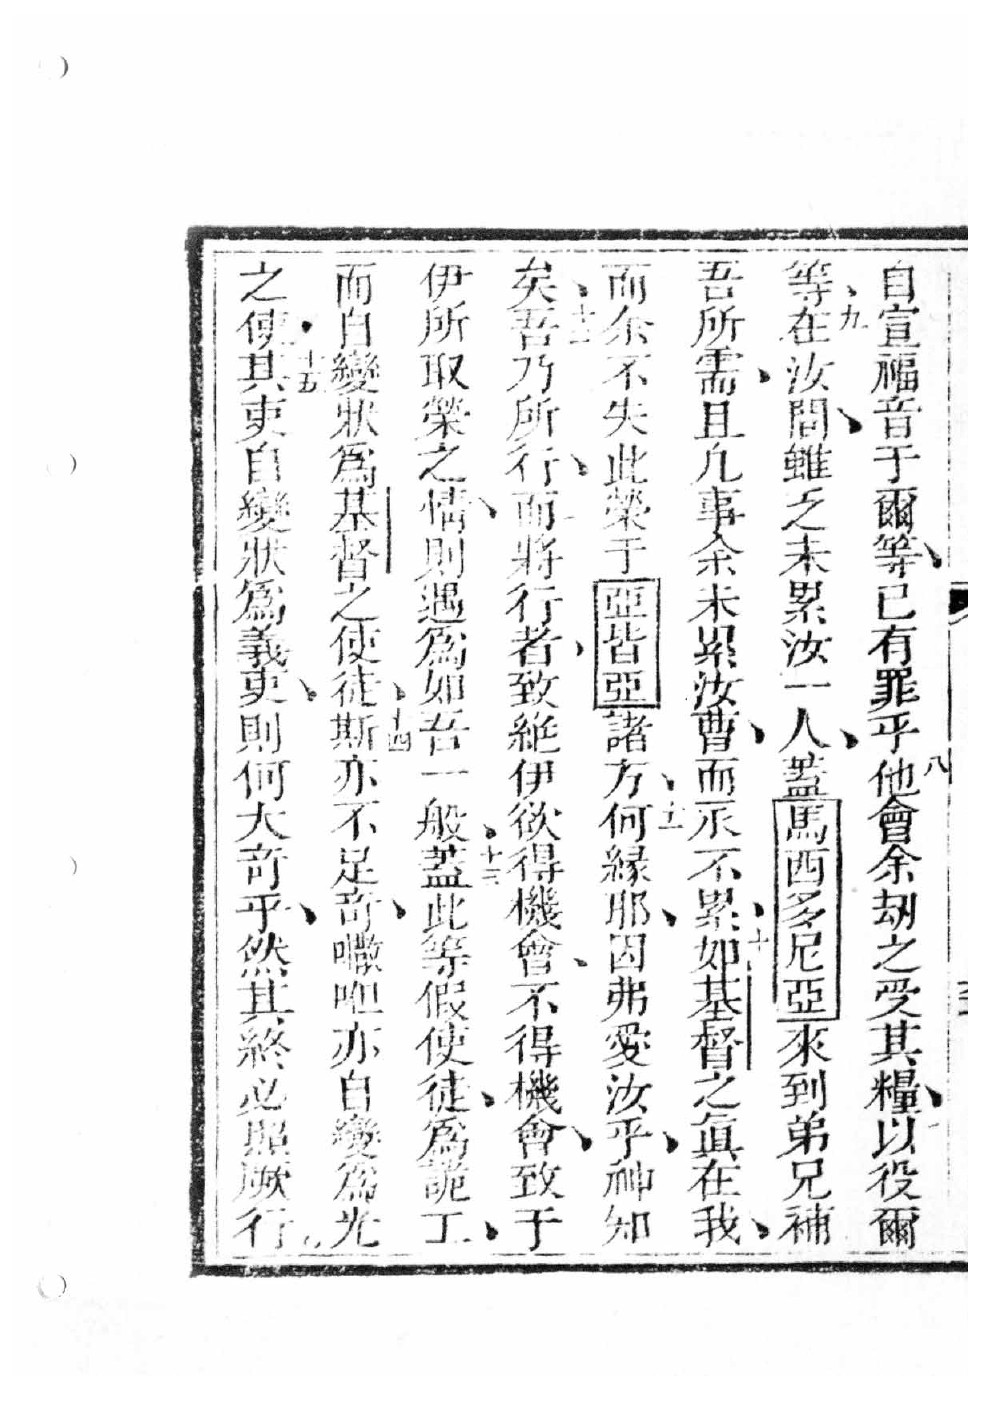 自宣福音于爾等已有罪乎八他會余劫之受其糧以役爾
等九在汝間雖乏未累汝一人蓋馬西多尼亞來到弟兄補
吾所需且凢事余未累汝曹而永不累十如基督之眞在我
而余不失此榮于亞皆亞諸方十一何緣耶因弗愛汝乎神知
矣十二吾乃所行而將行者致絶伊欲得機會不得機會致于
伊所取榮之情則遇爲如吾一般十三蓋此等假使徒爲詭工
而自變狀爲基督之使徒十四斯亦不足竒㘔呾亦自變爲光
之使十五其吏自變狀爲義吏則何大竒乎然其終必照厥行